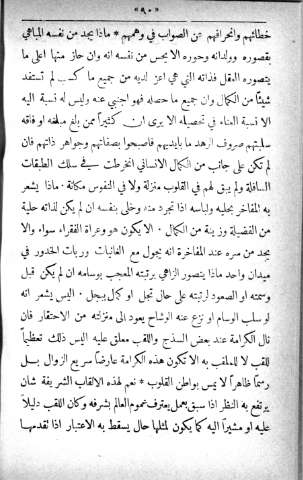 «٩٠»
خطائهم وانحرافهم عن الصواب في وهمهم * ماذا يجد من نفسه المباهي
بقصوره وولدانه وحوره الا يحس من نفسه انه وان حاز منها اعلى ما
يتصوره العقل فذاته التي هي اعز لديه من جميع ما كسب لم تستفد
شيئاً من الكمال وان جميع ما حصله فهو اجنبي عنه وليس له نسبة اليه
الا نسبة العناء في تحصيله الا يرى ان كثيراً ممن بلغ مبلغه او فاقه
سلبتهم صروف الدهر ما بايديهم فاصبحوا بصفاتهم وجواهر ذاتهم فان
لم تكن على جانب من الكمال الانساني انخرطت في سلك الطبقات
السافلة ولم يبق لهم في القلوب منزلة ولا في النفوس مكانة * ماذا يشعر
به المفاخر بحليه ولباسه اذا تجرد منه وخلى بنفسه ان لم يكن لذاته حلية
من الفضيلة وزينة من الكمال * الا يكون هو وعراة الفقراء سواء والا
يجد من سره عند المفاخرة انه يجول مع الغانيات وربات الخدور في
ميدان واحد ماذا يتصور الزاهي برتبته المعجب بوسامه ان لم يكن قبل
وسمته او الصعود لرتبته على حال تجل او كمال يبجل * اليس يشعر انه
لو سلب الوسام او نزع عنه الوشاح يعود الى منزلته من الاحتقار فان
نال الكرامة عند بعض السذج واللقب معلق عليه اليس ذلك تعظيماً
للقب لا للملقب به الا تكون هذه الكرامة عارضاً سريع الزوال بل
رسماً ظاهراً لا يمس بواطن القلوب * نعم لهذه الالقاب الشريفة شان
يرتفع به النظر اذا سبق بعمل يعترف عموم العالم بشرفه وكان اللقب دليلاً
عليه او مشيراً اليه كما يكون لمثلها حال يسقط به الاعتبار اذا تقدمها